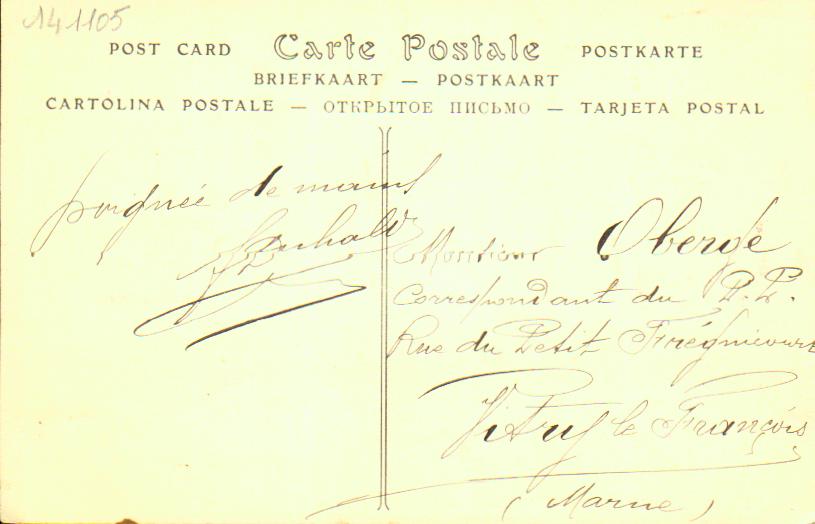 141105
POST CARD Carte Postale POSTKARTE
BRIEFKAART — POSTKAART
CARTOLINA POSTALE — ОТКРЫТОЕ ПИСЬМО — TARJETA POSTAL
poignée de mains
Monsieur Oberge
Correspondant du P. P.
Rue du Petit Frégnicourt
Vitry le François
(Marne)